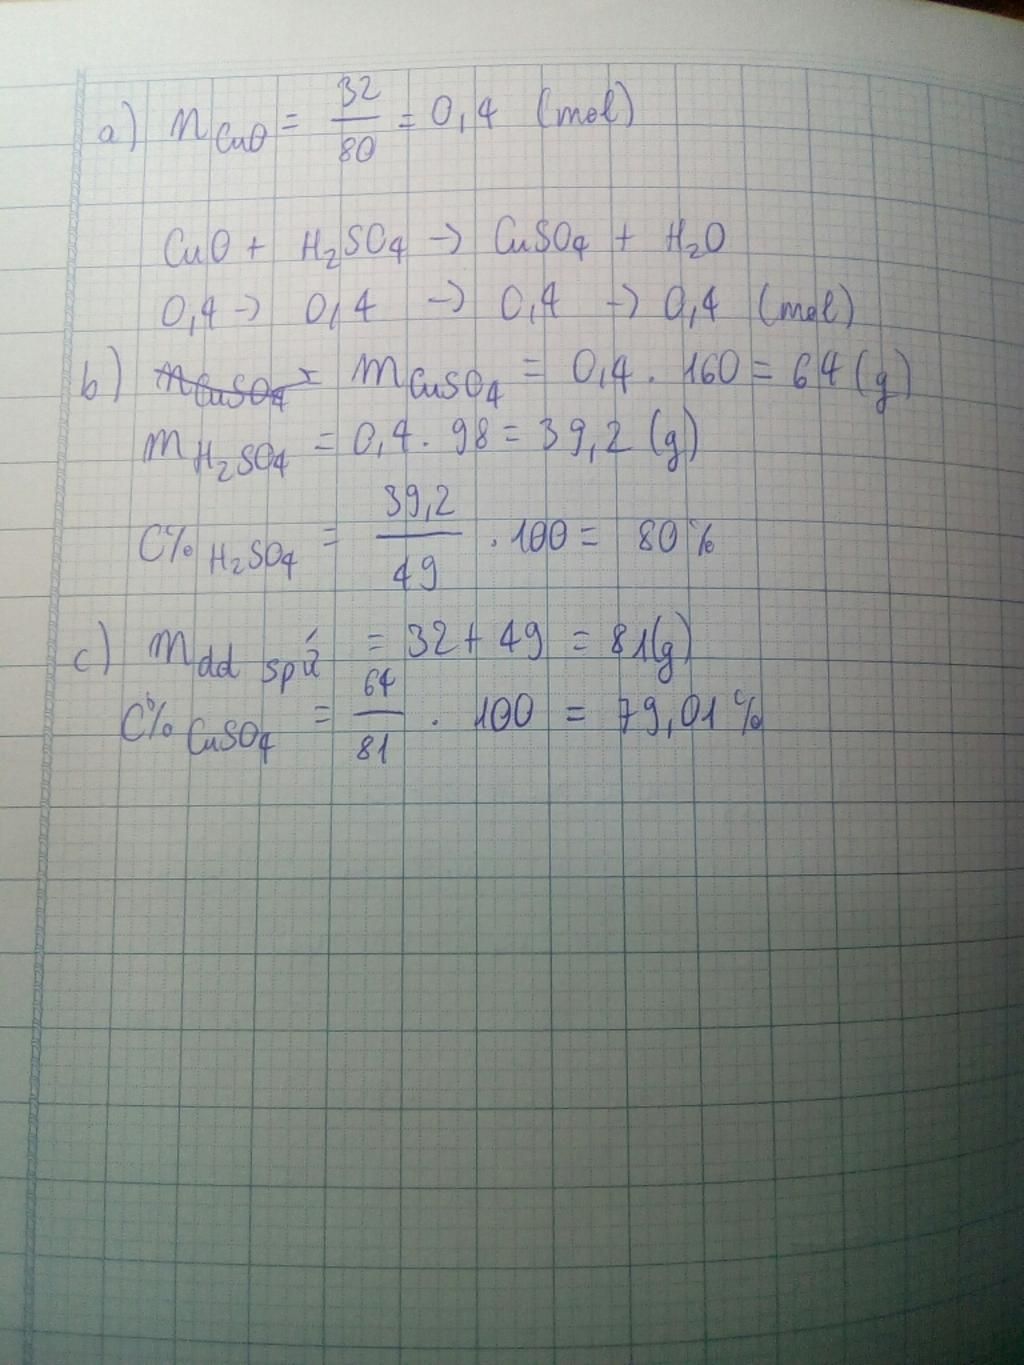 a) n CuO = 32/80 = 0,4 (mol)
CuO + H₂SO₄ → CuSO₄ + H₂O
0,4 → 0,4 → 0,4 → 0,4 (mol)
b) m CuSO₄ = m CuSO₄ = 0,4 . 160 = 64 (g)
m H₂SO₄ = 0,4 . 98 = 39,2 (g)
C% H₂SO₄ = 39,2/49 . 100 = 80%
c) m dd spứ = 32 + 49 = 81(g)
C% CuSO₄ = 64/81 . 100 = 79,01%